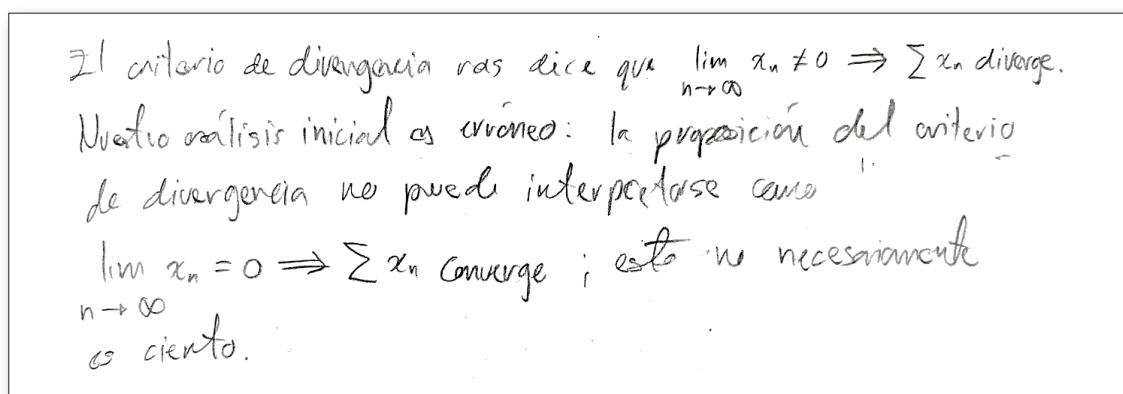 El criterio de divergencia nos dice que lim n→∞ xₙ ≠ 0 ⇒ ∑ xₙ diverge.
Nuestro análisis inicial es erróneo: la proposición del criterio
de divergencia no puede interpretarse como
lim n→∞ xₙ = 0 ⇒ ∑ xₙ converge ; esto no necesariamente
es cierto.